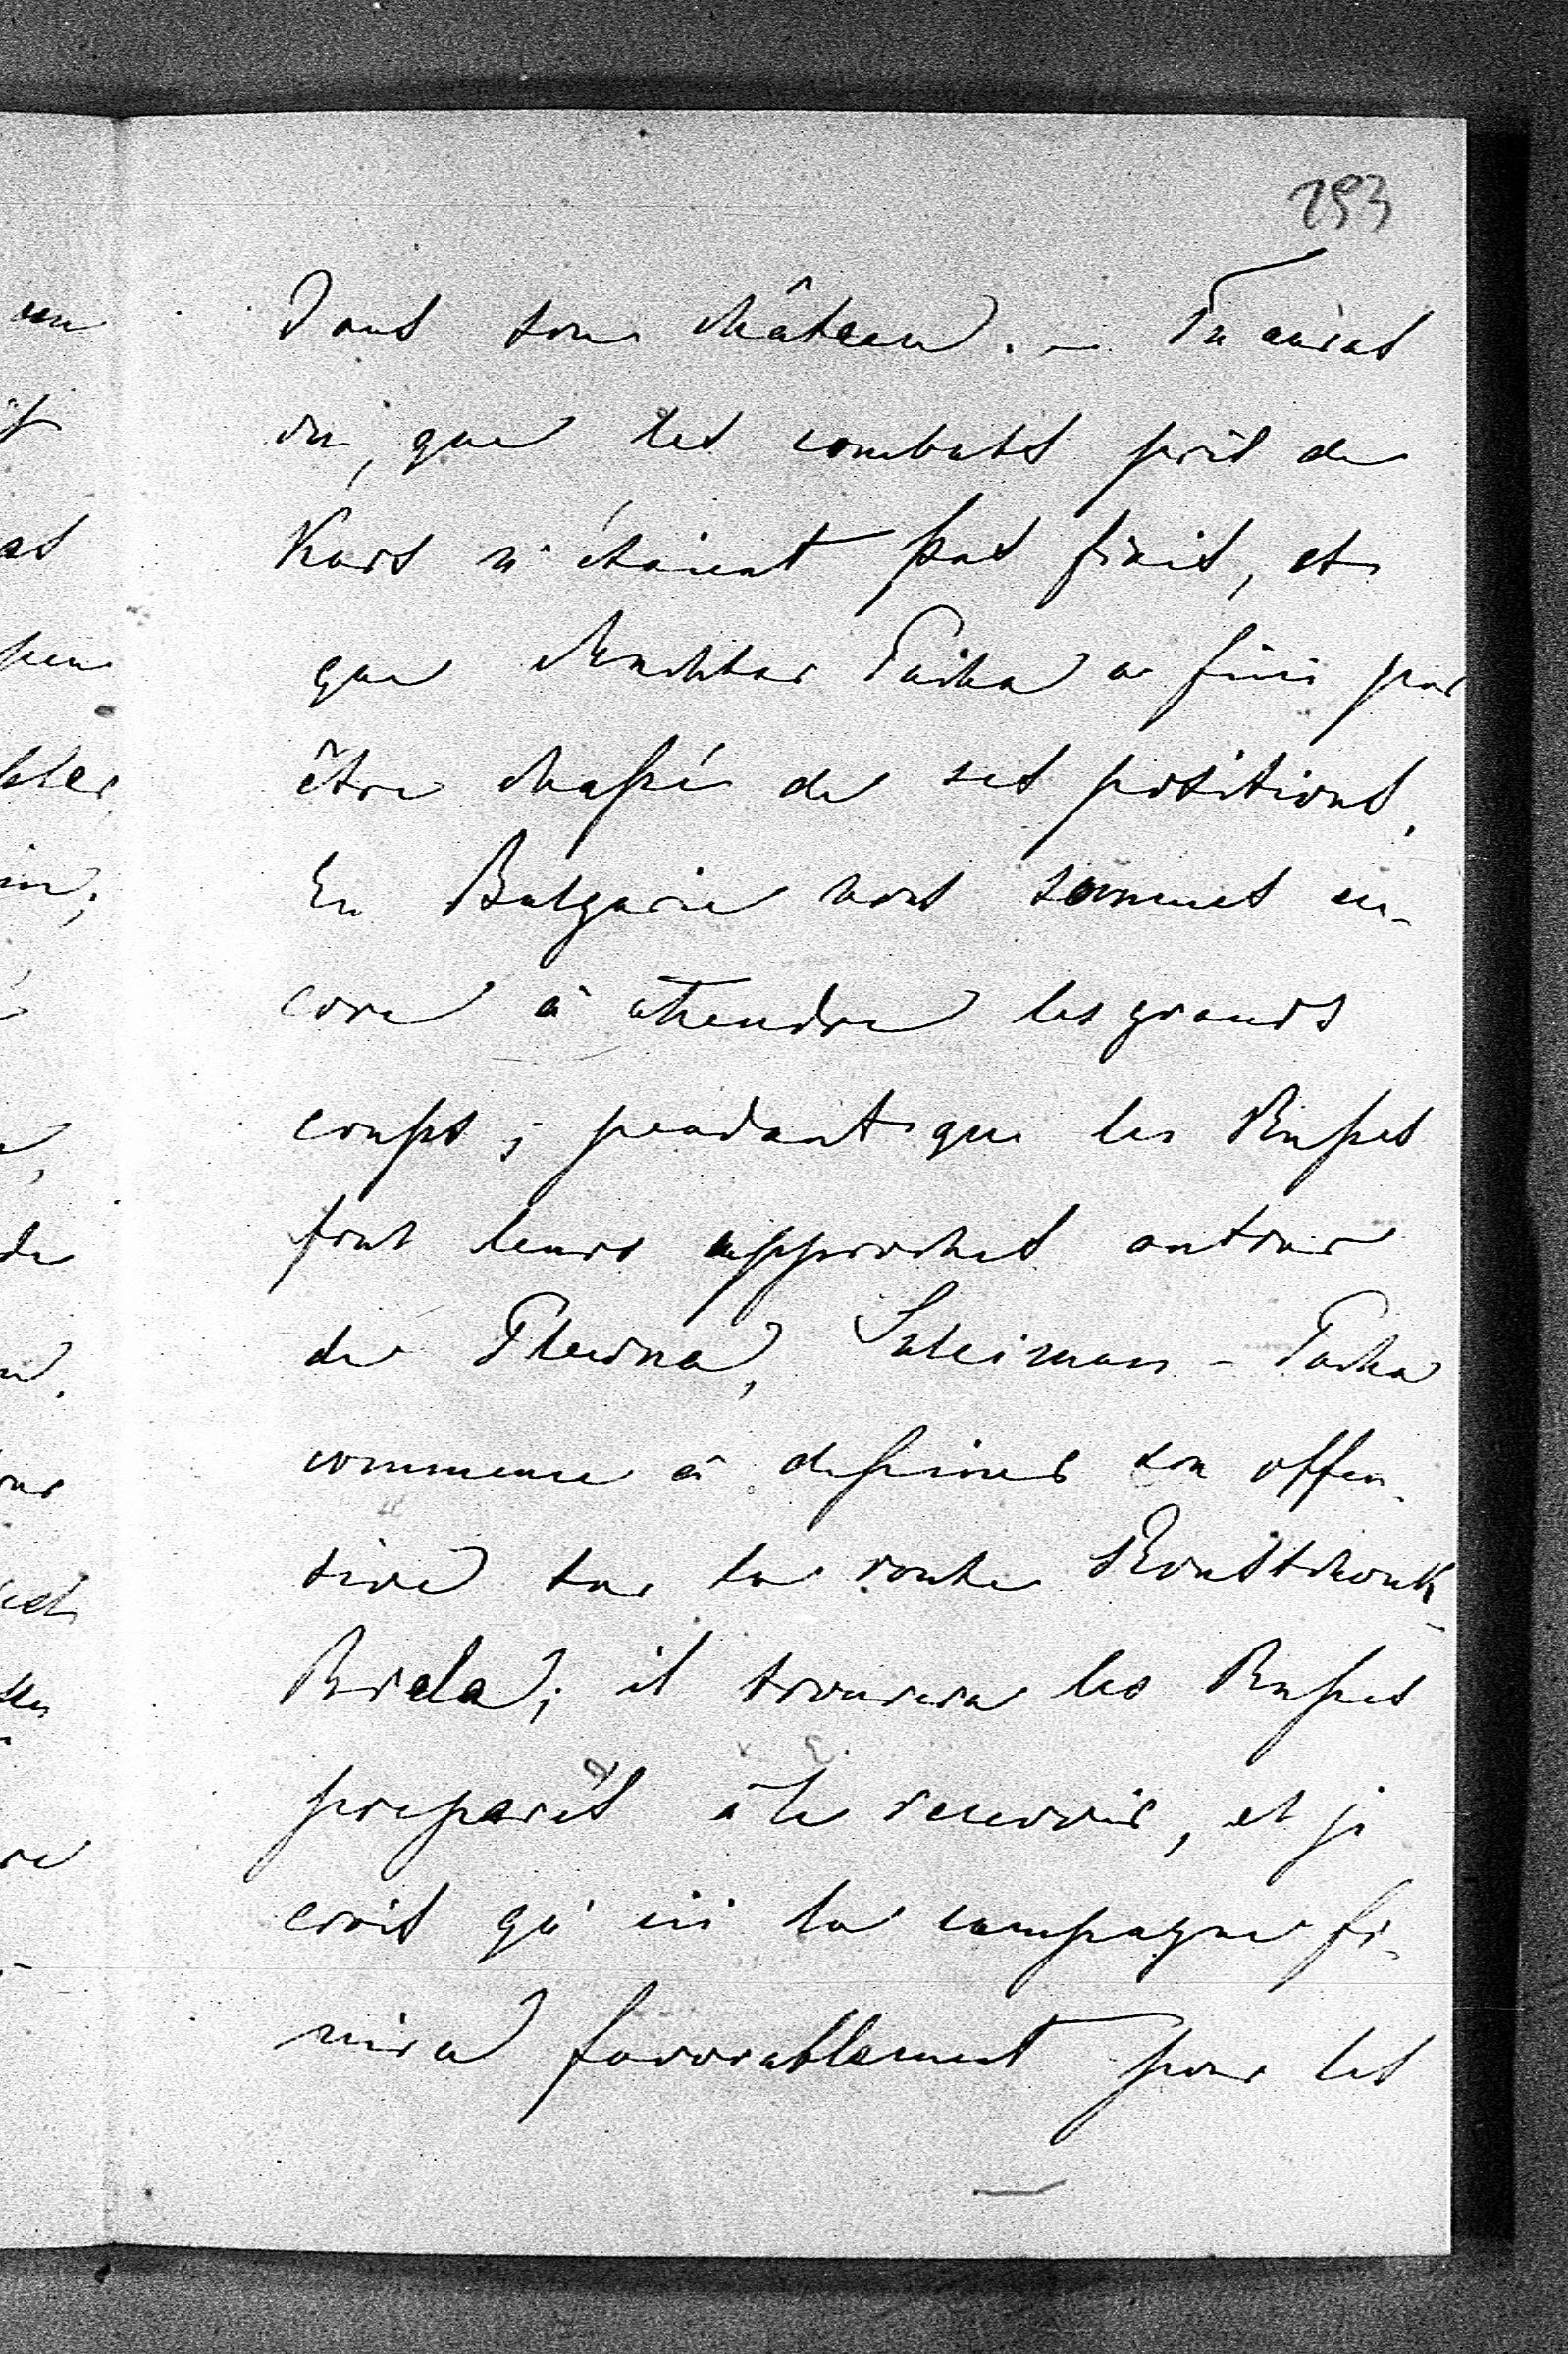 293
dans son château. — Tu auras
vu, que les combats près de
Kars n'étaient pas finis, et
que Mukhtar Pacha a fini par
être chassé de ses positions.
En Bulgarie nous sommes en-
core à attendre les grands
coups; pendant que les Russes
font leurs approches autour
de Plewna, Suleiman-Pacha
commence à dessiner son offen-
sive sur la route Roustchouk-
Biela; il trouvera les Russes
préparés à le recevoir, et je
crois qu'ici la campagne fi-
nira favorablement pour les